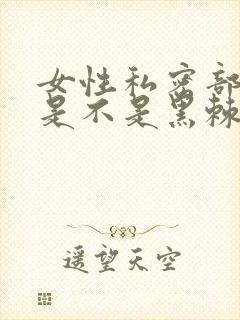 女性私密部
是不是黑棘
遥望天空